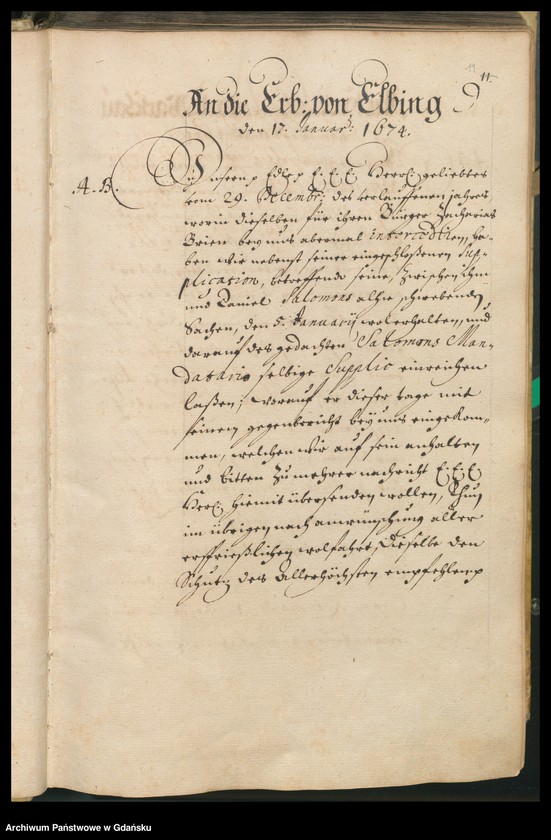 11.
An die Erb: von Elbing
den 17. Januar: 1674.
A. B.
Unsern p Edle p E. E. E. Herrl: geliebtes
vom 29. Decembr: des verlauffenen jahres
worin dieselben für ihren Bürger Zacharias
Brien bey uns abermal intercediren, ha-
ben wir nebenst seiner eingeschloßenen Sup-
plication, betreffende seine, zwischen ihm
und Daniel Salomons alhie schwebende
Sachen, den 5. Januarij wol erhalten, und
darauf des gedachten Salomons Man-
datario selbige Supplic einreichen
laßen; worauf er dieser tage mit
seinem gegenbericht bey uns eingekom-
men, welchen wir auf sein anhalten
und bitten zu mehrer nachricht E. E. E.
Herrl: hiemit übersenden wollen, Thun
im übrigen nach anwünschung aller
ersprießlichen wolfahrt, Dieselbe dem
Schutz des Allerhöchsten empfehlen p
Archiwum Państwowe w Gdańsku